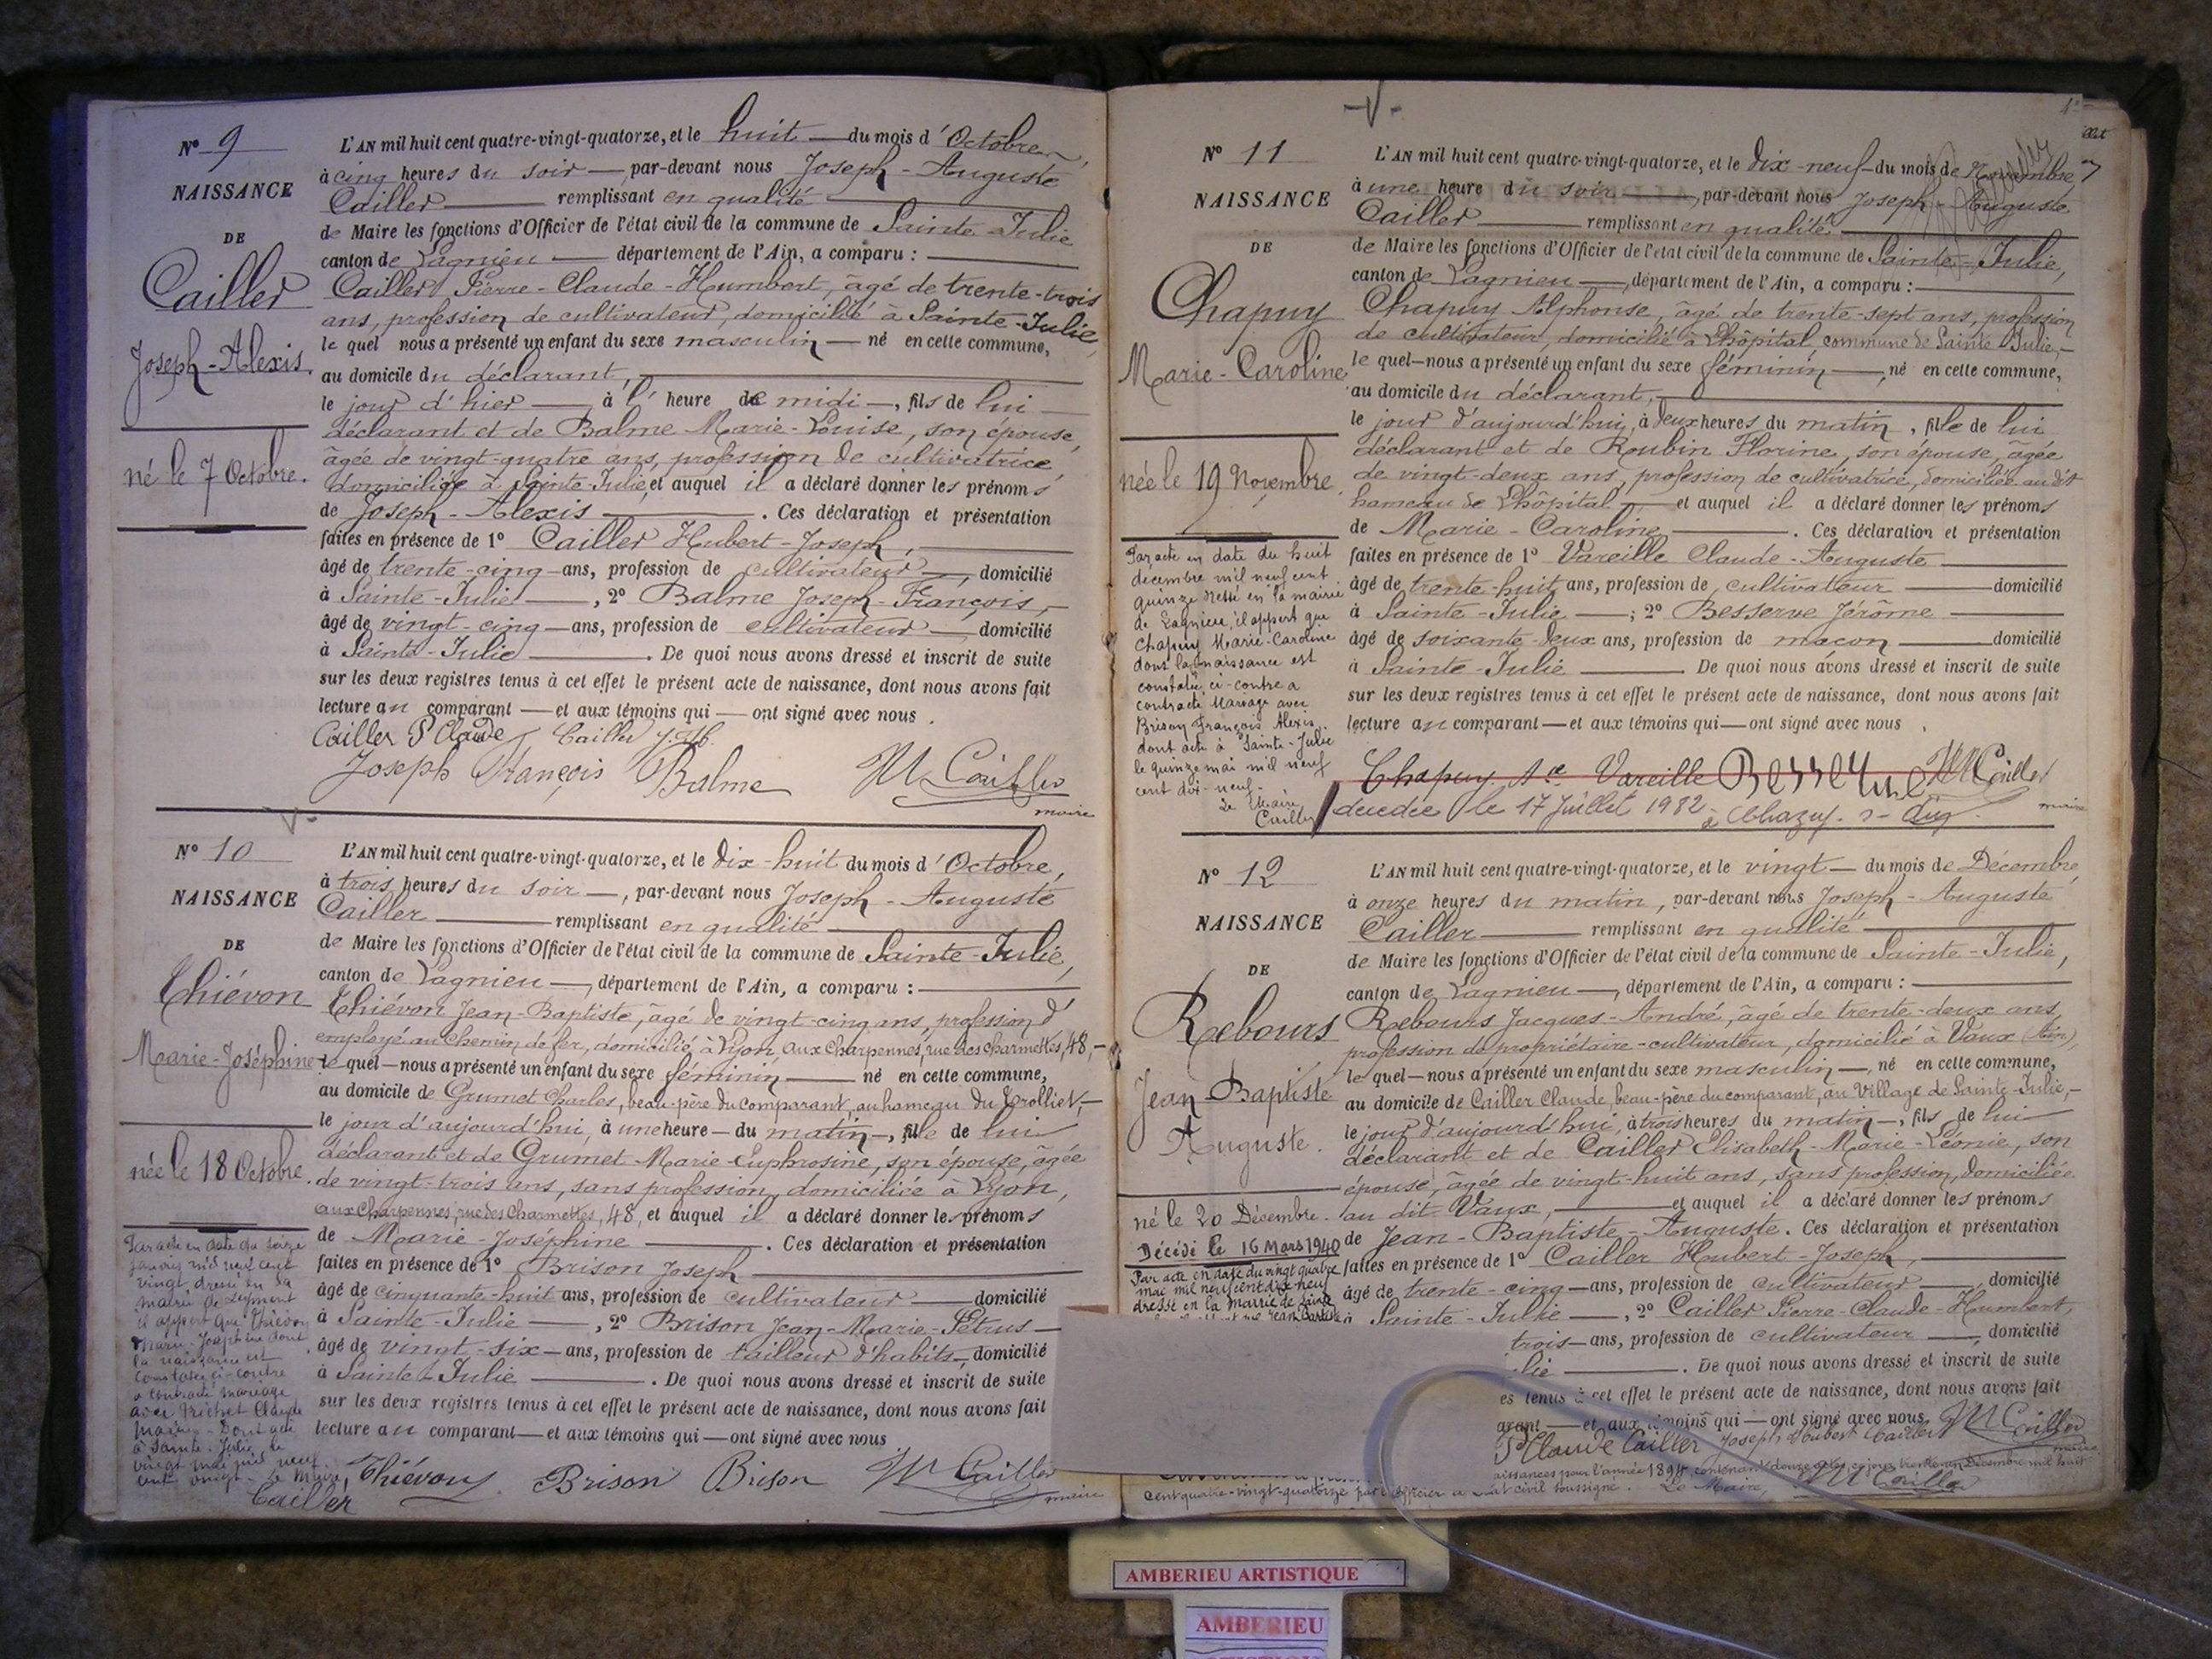 N° 9
NAISSANCE
DE
Cailler
Joseph-Alexis.
né le 7 Octobre.
L'AN mil huit cent quatre-vingt-quatorze, et le huit du mois d'Octobre,
à cinq heures du soir par-devant nous Joseph-Auguste
Cailler remplissant en qualité
de Maire les fonctions d'Officier de l'état civil de la commune de Sainte-Julie
canton de Lagnieu département de l'Ain, a comparu :
Cailler Pierre-Claude-Humbert, âgé de trente-trois
ans, profession de cultivateur, domicilié à Sainte-Julie,
le quel nous a présenté un enfant du sexe masculin né en cette commune,
au domicile du déclarant,
le jour d'hier à l'heure de midi, fils de lui
déclarant et de Balme Marie-Louise, son épouse,
âgée de vingt-quatre ans, profession de cultivatrice
domiciliée à Sainte-Julie, et auquel il a déclaré donner les prénoms
de Joseph-Alexis. Ces déclaration et présentation
faites en présence de 1° Cailler Hubert-Joseph,
âgé de trente-cinq ans, profession de cultivateur, domicilié
à Sainte-Julie, 2° Balme Joseph-François,
âgé de vingt-cinq ans, profession de cultivateur domicilié
à Sainte-Julie. De quoi nous avons dressé et inscrit de suite
sur les deux registres tenus à cet effet le présent acte de naissance, dont nous avons fait
lecture au comparant et aux témoins qui ont signé avec nous.
Cailler P Claude Cailler J. H.
Joseph François Balme Cailler
maire
N° 10
NAISSANCE
DE
Thiévon
Marie-Joséphine
née le 18 Octobre.
Par acte en date du seize
janvier mil neuf cent
vingt dressé en la
mairie de Leyment
il appert que Thiévon
Marie-Joséphine dont
la naissance est
constatée ci-contre
a contracté mariage
avec Claude
Dont acte
à Sainte-Julie le
vingt mai mil neuf
cent vingt. Le Maire,
Cailler
L'AN mil huit cent quatre-vingt-quatorze, et le dix-huit du mois d'Octobre,
à trois heures du soir, par-devant nous Joseph-Auguste
Cailler remplissant en qualité
de Maire les fonctions d'Officier de l'état civil de la commune de Sainte-Julie,
canton de Lagnieu, département de l'Ain, a comparu :
Thiévon Jean-Baptiste, âgé de vingt-cinq ans, profession d'
employé au chemin de fer, domicilié à Lyon, aux Charpennes, rue des Charmettes, 48,
le quel nous a présenté un enfant du sexe féminin né en cette commune,
au domicile de Grumet Charles, beau-père du comparant, au hameau du Trolliet,
le jour d'aujourd'hui, à une heure du matin, fille de lui
déclarant et de Grumet Marie-Euphrosine, son épouse, âgée
de vingt-trois ans, sans profession, domiciliée à Lyon,
aux Charpennes, rue des Charmettes, 48, et auquel il a déclaré donner les prénoms
de Marie-Joséphine. Ces déclaration et présentation
faites en présence de 1° Brison Joseph
âgé de cinquante-huit ans, profession de cultivateur domicilié
à Sainte-Julie, 2° Brison Jean-Marie-Pétrus
âgé de vingt-six ans, profession de tailleur d'habits, domicilié
à Sainte-Julie. De quoi nous avons dressé et inscrit de suite
sur les deux registres tenus à cet effet le présent acte de naissance, dont nous avons fait
lecture au comparant et aux témoins qui ont signé avec nous
Thiévon Brison Brison Cailler
maire
N° 11
NAISSANCE
DE
Chapuy
Marie-Caroline
née le 19 Novembre.
Par acte en date du huit
décembre mil neuf cent
quinze dressé en la mairie
de Lagnieu, il appert que
Chapuy Marie-Caroline
dont la naissance est
constatée ci-contre a
contracté mariage avec
Brison François Alexis.
dont acte à Sainte-Julie
le quinze mai mil neuf
cent dix-neuf.
Le Maire
Cailler
L'AN mil huit cent quatre-vingt-quatorze, et le dix-neuf du mois de Novembre
à une heure du soir, par-devant nous Joseph-Auguste
Cailler remplissant en qualité
de Maire les fonctions d'Officier de l'état civil de la commune de Sainte-Julie,
canton de Lagnieu, département de l'Ain, a comparu :
Chapuy Alphonse, âgé de trente-sept ans, profession
de cultivateur, domicilié à Lhôpital commune de Sainte-Julie,
le quel nous a présenté un enfant du sexe féminin, né en cette commune,
au domicile du déclarant,
le jour d'aujourd'hui, à deux heures du matin, fille de lui
déclarant et de Roubin Florine, son épouse, âgée
de vingt-deux ans, profession de cultivatrice, domiciliée au dit
hameau de Lhôpital et auquel il a déclaré donner les prénoms
de Marie-Caroline. Ces déclaration et présentation
faites en présence de 1° Vareille Claude-Auguste
âgé de trente-huit ans, profession de cultivateur domicilié
à Sainte-Julie; 2° Besserve Jérôme
âgé de soixante-deux ans, profession de maçon domicilié
à Sainte-Julie. De quoi nous avons dressé et inscrit de suite
sur les deux registres tenus à cet effet le présent acte de naissance, dont nous avons fait
lecture au comparant et aux témoins qui ont signé avec nous.
Chapuy Vareille Besserve Cailler
maire
décédée le 17 Juillet 1982 à Chazey-s-Ain.
N° 12
NAISSANCE
DE
Rebours
Jean-Baptiste
Auguste.
né le 20 Décembre.
Décédé le 16 Mars 1940
Par acte en date du vingt quatre
mai mil neuf cent dix neuf
dressé en la mairie de
L'AN mil huit cent quatre-vingt-quatorze, et le vingt du mois de Décembre,
à onze heures du matin, par-devant nous Joseph-Auguste
Cailler remplissant en qualité
de Maire les fonctions d'Officier de l'état civil de la commune de Sainte-Julie,
canton de Lagnieu, département de l'Ain, a comparu :
Rebours Jacques-André, âgé de trente-deux ans,
profession de propriétaire-cultivateur, domicilié à Vaux (Ain),
le quel nous a présenté un enfant du sexe masculin, né en cette commune,
au domicile de Cailler Claude, beau-père du comparant, au Village de Sainte-Julie,
le jour d'aujourd'hui, à trois heures du matin, fils de lui
déclarant et de Cailler Elisabeth-Marie-Léonie, son
épouse, âgée de vingt-huit ans, sans profession, domiciliée
au dit Vaux, et auquel il a déclaré donner les prénoms
de Jean-Baptiste-Auguste. Ces déclaration et présentation
faites en présence de 1° Cailler Hubert-Joseph,
âgé de trente-cinq ans, profession de cultivateur, domicilié
à Sainte-Julie, 2° Cailler Pierre-Claude-Humbert,
trois ans, profession de cultivateur, domicilié
lie. De quoi nous avons dressé et inscrit de suite
es tenus à cet effet le présent acte de naissance, dont nous avons fait
arant et aux témoins qui ont signé avec nous
P Claude Cailler Joseph Hubert Cailler Cailler
maire
aissances pour l'année 1894, contenant douze actes, ce jour trente-un Décembre mil huit
cent quatre-vingt-quatorze par l'officier état civil soussigné. Le Maire, Cailler
AMBERIEU ARTISTIQUE
AMBERIEU